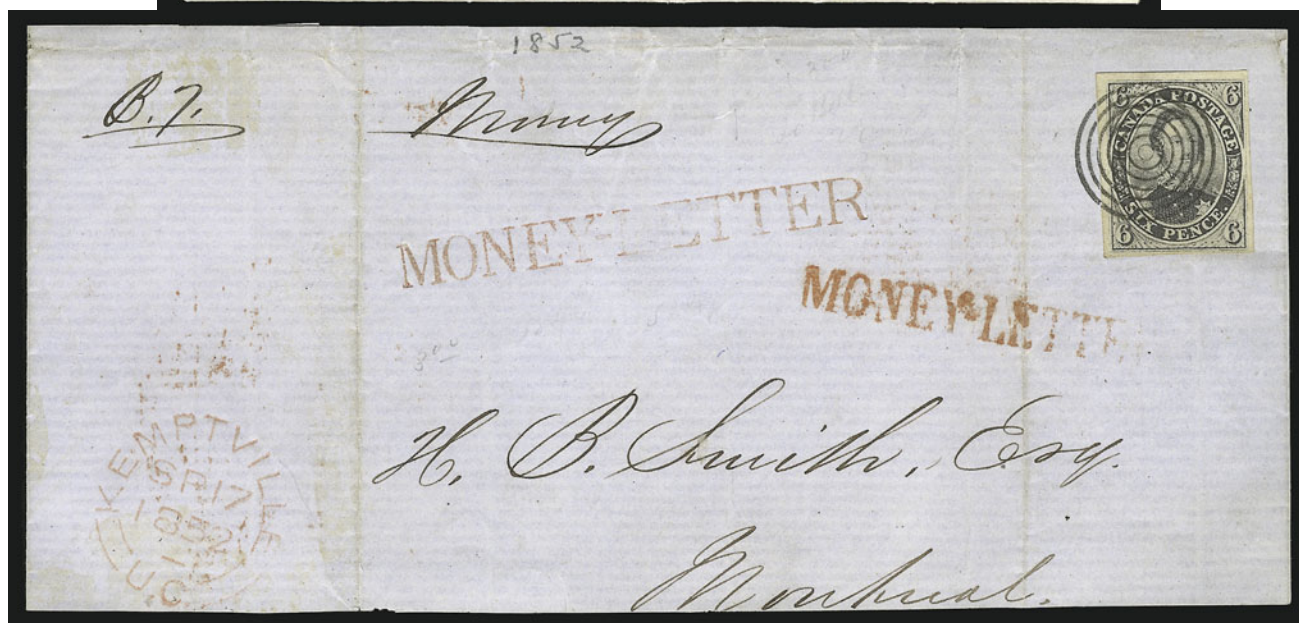 1852
Money
6 CANADA POSTAGE 6
6 SIX PENCE. 6
MONEY-LETTER
MONEY-LETTE
KEMPTVILLE
SP 17
1852
U.C.
H. B. Smith, Esq.
Montreal.